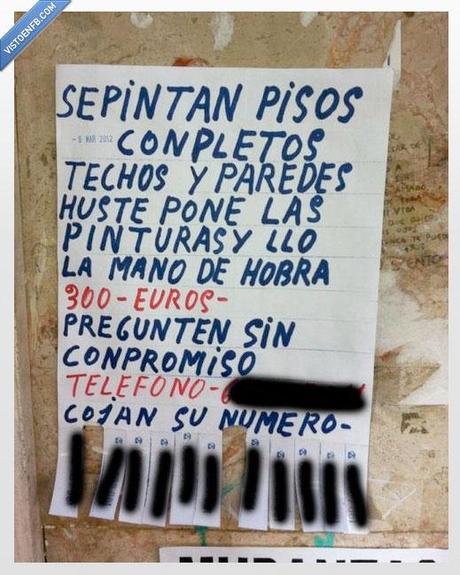 VISTOENFB.COM
SEPINTAN PISOS
- 8 MAR 2012
CONPLETOS
TECHOS Y PAREDES
HUSTE PONE LAS
PINTURAS Y LLO
LA MANO DE HOBRA
300 - EUROS -
PREGUNTEN SIN
CONPROMISO
TELEFONO -
COJAN SU NUMERO -